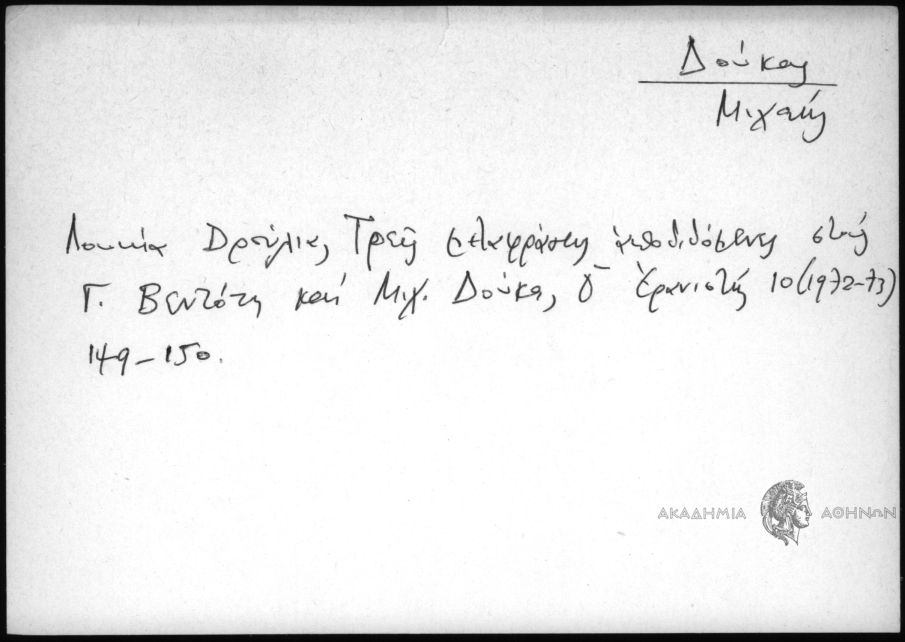 Δούκας
Μιχαήλ
Λουκία Δρούλια, Τρεῖς μεταφράσεις ἀποδιδόμενες στούς
Γ. Βεντότη καί Μιχ. Δούκα, Ὁ Ἐρανιστής 10 (1972-73)
149-150.
ΑΚΑΔΗΜΙΑ ΑΘΗΝΩΝ